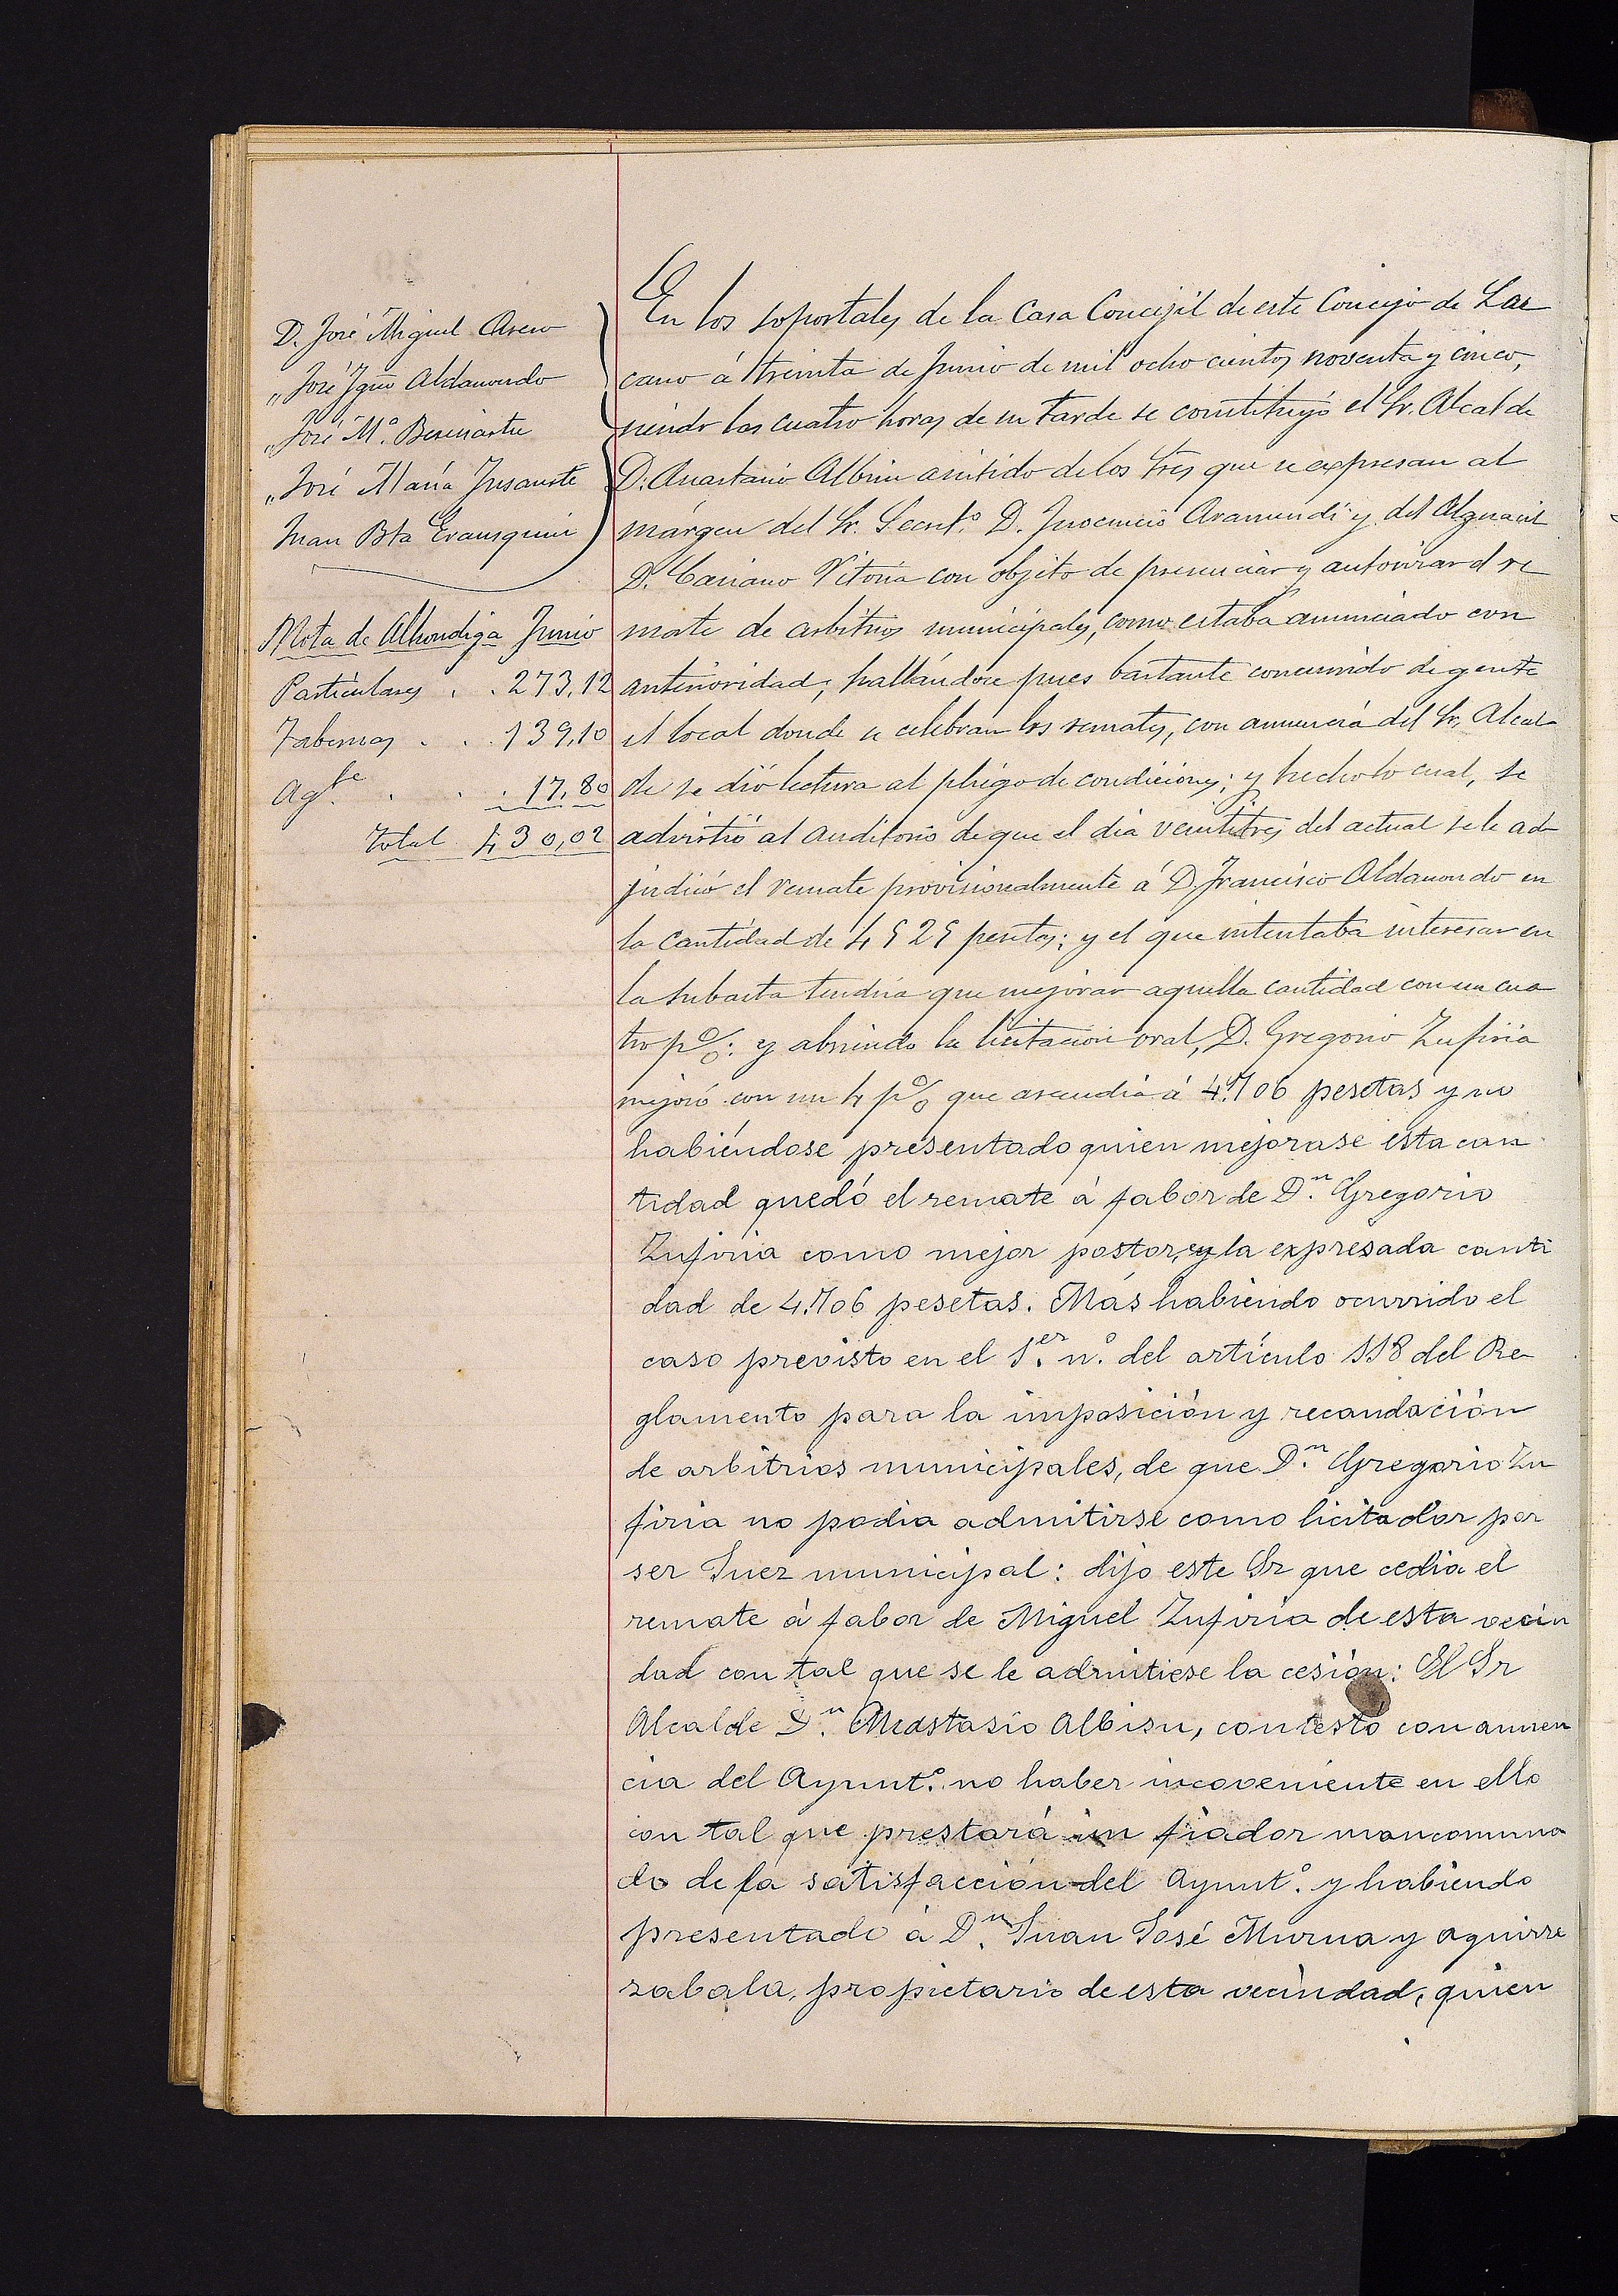 D. José Miguel Asero
„ José Ign.º Aldamondo
„ José M.ª Beriniartu
„ José María Insausti
Juan Bta Erausquin
Nota de Alhondiga Junio
Particulares . . 273,12
Tabernas . . . 139,10
Ag.te . . . 17,80
Total 430,02
En los soportales de la Casa Concejil de este Concejo de Laz
cano á treinta de Junio de mil ocho cientos noventa y cinco,
siendo las cuatro horas de su tarde se constituyó el Sr. Alcalde
D. Anastasio Albisu asistido de los Sres que se expresan al
márgen del Sr. Secret.º D. Inocencio Aramendi y del Alguacil
D. Casiano Vitoria con objeto de presenciar y autorizar el re
mate de arbitrios municipales, como estaba anunciado con
anterioridad; hallándose pues bastante concurrido de gente
el local donde se celebran los remates, con anuencia del Sr. Alcal
de se dió lectura al pliego de condiciones; y hecho lo cual, se
advirtió al auditorio de que el dia veintitres del actual se le ad
judicó el remate provisionalmente á D. Francisco Aldamondo en
la cantidad de 4525 pesetas; y el que intentaba interesar en
la subasta tendria que mejorar aquella cantidad con un cua
tro p%: y abriendo la licitación oral, D. Gregorio Zufiria
mejoró con un 4 p% que ascendia á 4.706 pesetas y no
habiéndose presentado quien mejorase esta can
tidad quedó el remate á fabor de D.n Gregorio
Zufiria como mejor postor, en la expresada canti
dad de 4.706 pesetas. Más habiendo ocurrido el
caso previsto en el 1.er n.º del artículo 118 del Re
glamento para la imposición y recaudación
de arbitrios municipales, de que D.n Gregorio Zu
firia no podia admitirse como licitador por
ser Juez municipal: dijo este Sr que cedia el
remate á fabor de Miguel Zufiria de esta vecin
dad con tal que se le admitiese la cesión: El Sr
Alcalde D.n Anastasio Albisu, contestó con anuen
cia del Ayunt.º no haber incoveniente en ello
con tal que prestará un fiador mancomuna
do de la satisfacción del Ayunt.º y habiendo
presentado á D.n Juan José Murua y Aguirre
zabala, propietario de esta vecindad, quien